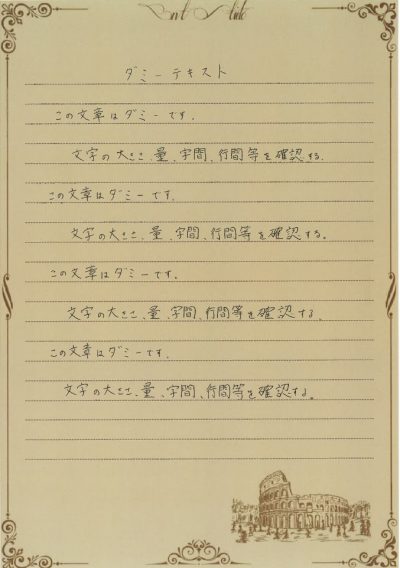 ダミーテキスト
この文章はダミーです.
文字の大きさ、量、字間、行間等を確認する.
この文章はダミーです.
文字の大きさ、量、字間、行間等を確認する。
この文章はダミーです.
文字の大きさ、量、字間、行間等を確認する。
この文章はダミーです.
文字の大きさ、量、字間、行間等を確認する。